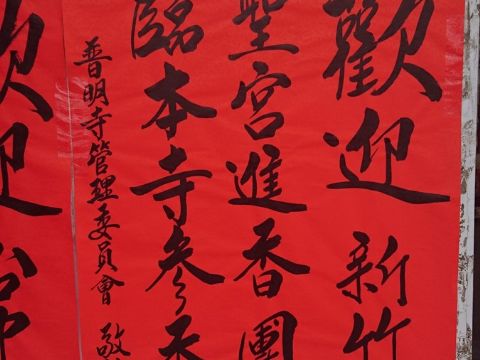 歡迎新竹
聖宮進香團
臨本寺參香
普明寺管理委員會 敬
歡迎台中